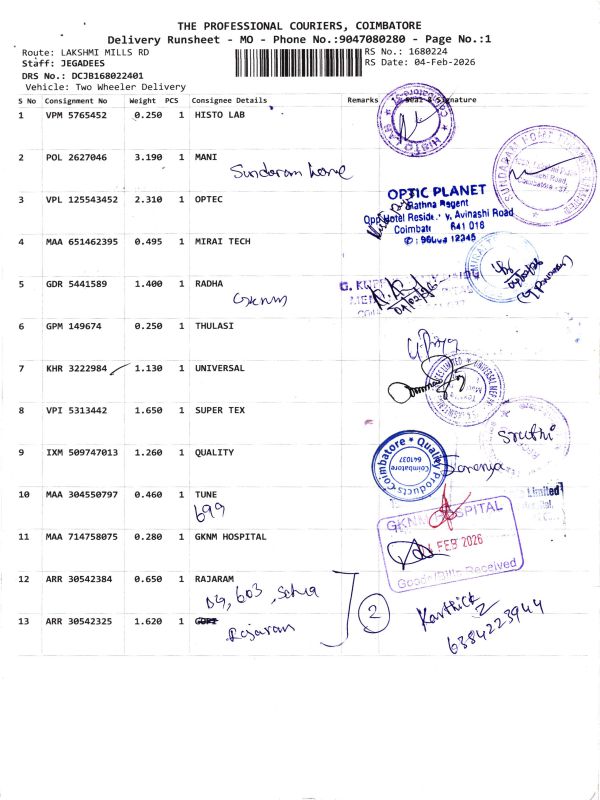 THE PROFESSIONAL COURIERS, COIMBATORE
Delivery Runsheet - MO - Phone No.:9047080280 - Page No.:1
Route: LAKSHMI MILLS RD
RS No.: 1680224
Staff: JEGADEES
RS Date: 04-Feb-2026
DRS No.: DCJB168022401
Vehicle: Two Wheeler Delivery
S No Consignment No Weight PCS Consignee Details Remarks Seal & Signature
1 VPM 5765452 0.250 1 HISTO LAB
HISTO LAB
2 POL 2627046 3.190 1 MANI
Sundaram home
3 VPL 125543452 2.310 1 OPTEC
OPTIC PLANET
Rathna Regent
Avinashi Road
4 MAA 651462395 0.495 1 MIRAI TECH
5 GDR 5441589 1.400 1 RADHA
Gknm
6 GPM 149674 0.250 1 THULASI
7 KHR 3222984 1.130 1 UNIVERSAL
8 VPI 5313442 1.650 1 SUPER TEX
Sruthi
9 IXM 509747013 1.260 1 QUALITY
Quality Products Coimbatore
Coimbatore
641037
Saranya
10 MAA 304550797 0.460 1 TUNE
699
Limited
11 MAA 714758075 0.280 1 GKNM HOSPITAL
GKNM HOSPITAL
FEB 2026
Goods/Bills Received
12 ARR 30542384 0.650 1 RAJARAM
D9, 603, Sehra
2
Karthick
6384223944
13 ARR 30542325 1.620 1
Rajaram